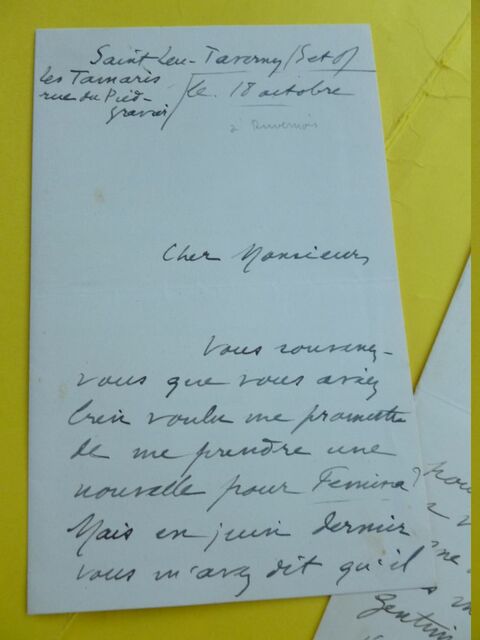 Saint Leu-Taverny (S et O)
Les Tamaris
rue du Pied-
Gravier
le. 18 octobre
à Duvernois
Cher Monsieur,
Vous souvenez-
vous que vous aviez
bien voulu me promettre
de me prendre une
nouvelle pour Femina?
Mais en juin dernier
vous m'avez dit qu'il
pou
ne